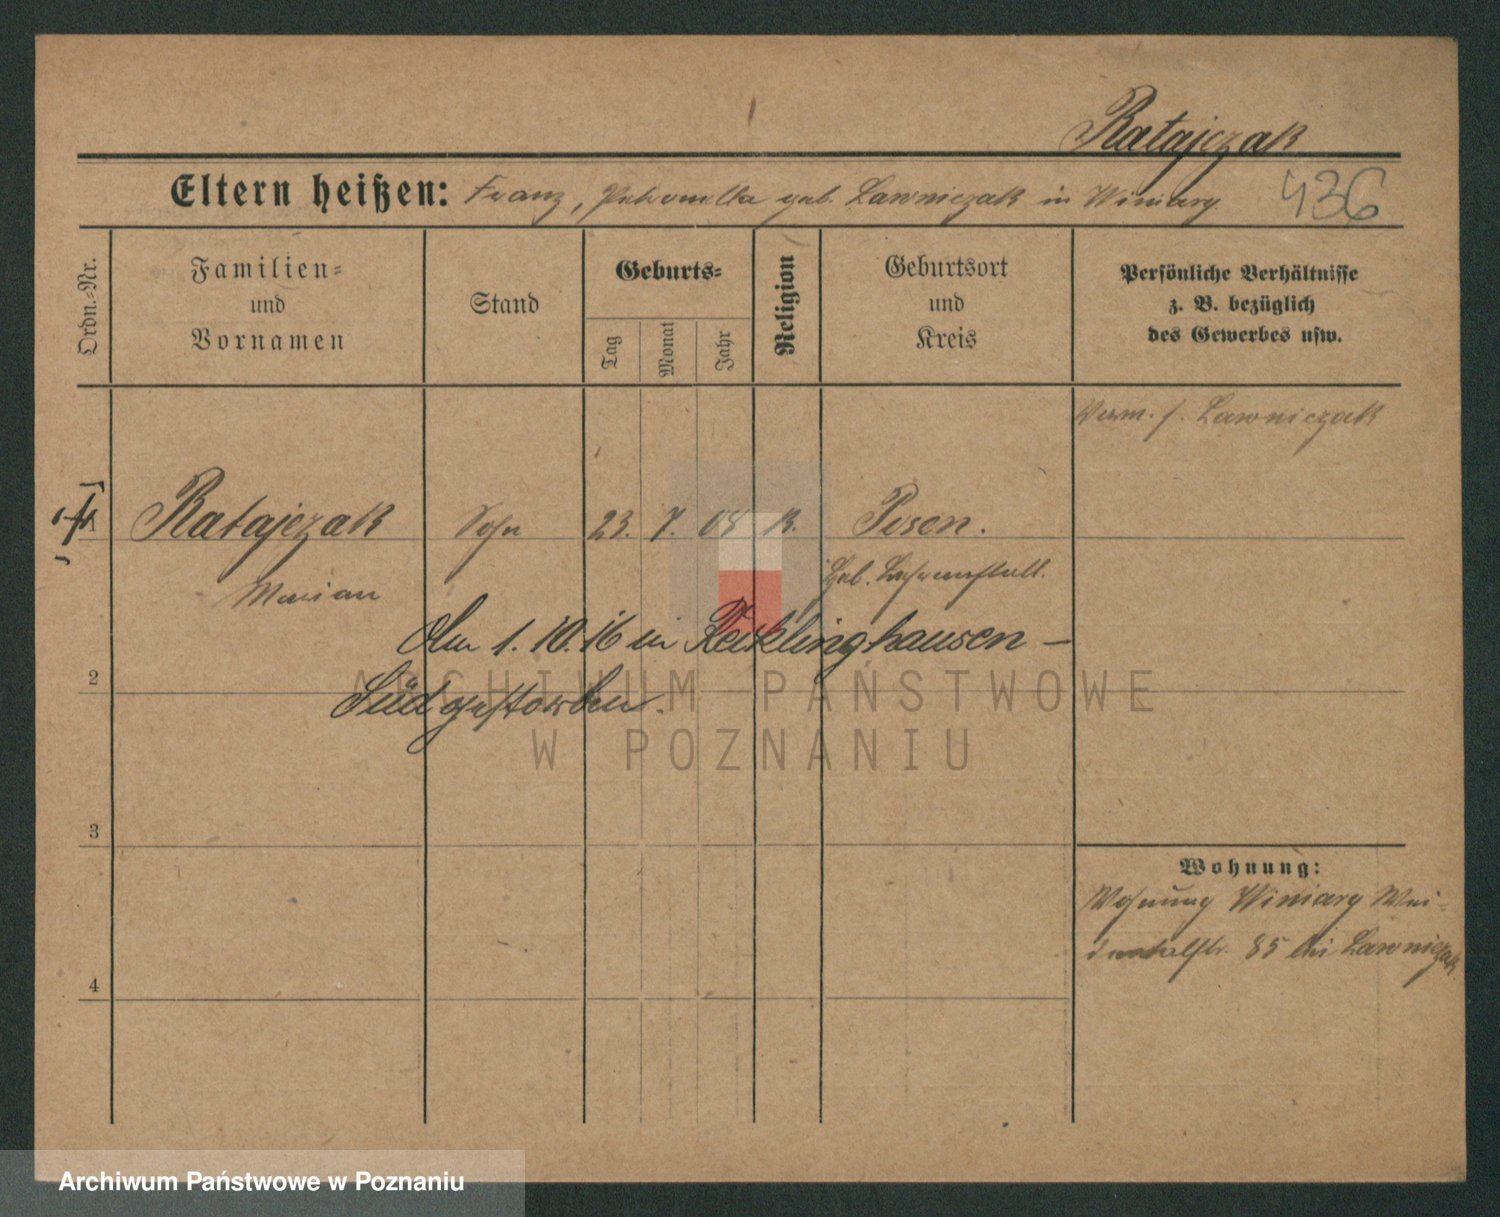 Ratajczak
Eltern heißen: Franz, Petronella geb. Lawniczak in Winiary
436
Ordn.-Nr.
Familien-
und
Vornamen
Stand
Geburts-
Tag
Monat
Jahr
Religion
Geburtsort
und
Kreis
Persönliche Verhältnisse
z. B. bezüglich
des Gewerbes usw.
Verm. s. Lawniczak
1
Ratajczak Sohn 23. 7. 08 k. Posen.
Marian
Geb.
Am 1. 10. 16 in Recklinghausen –
Süd gestorben.
2
3
4
Wohnung:
Wohnung Winiary
85 bei Lawniczak
ARCHIWUM PAŃSTWOWE
W POZNANIU
Archiwum Państwowe w Poznaniu